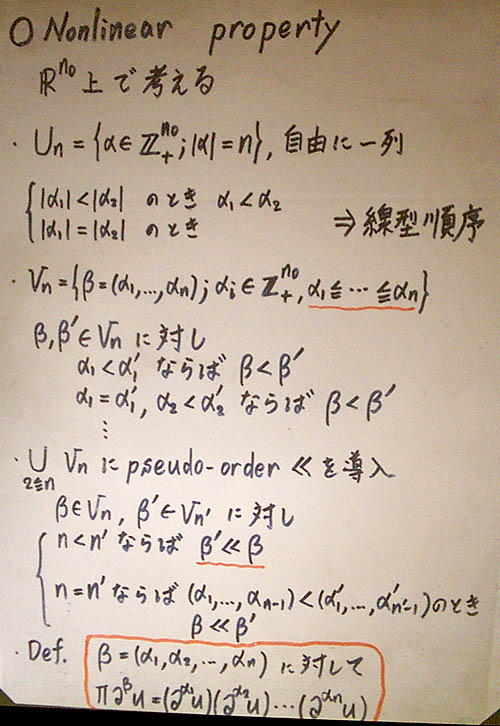 ○ Nonlinear property
ℝ^{n₀}上で考える
・ U_n = {α∈ℤ₊^{n₀}; |α|=n}, 自由に一列
{ |α₁|<|α₂| のとき α₁<α₂
|α₁|=|α₂| のとき ⇒ 線型順序
・ V_n = {β=(α₁,...,α_n); α_i∈ℤ₊^{n₀}, α₁≦…≦α_n}
β,β'∈V_n に対し
α₁<α₁' ならば β<β'
α₁=α₁', α₂<α₂' ならば β<β'
⋮
・ ∪_{2≦n} V_n に pseudo-order ≪ を導入
β∈V_n, β'∈V_{n'} に対し
{ n<n' ならば β'≪β
n=n' ならば (α₁,...,α_{n-1})<(α₁',...,α'_{n'-1})のとき
β≪β'
・ Def. β=(α₁,α₂,...,α_n) に対して
Π∂^βu=(∂^{α₁}u)(∂^{α₂}u)…(∂^{α_n}u)